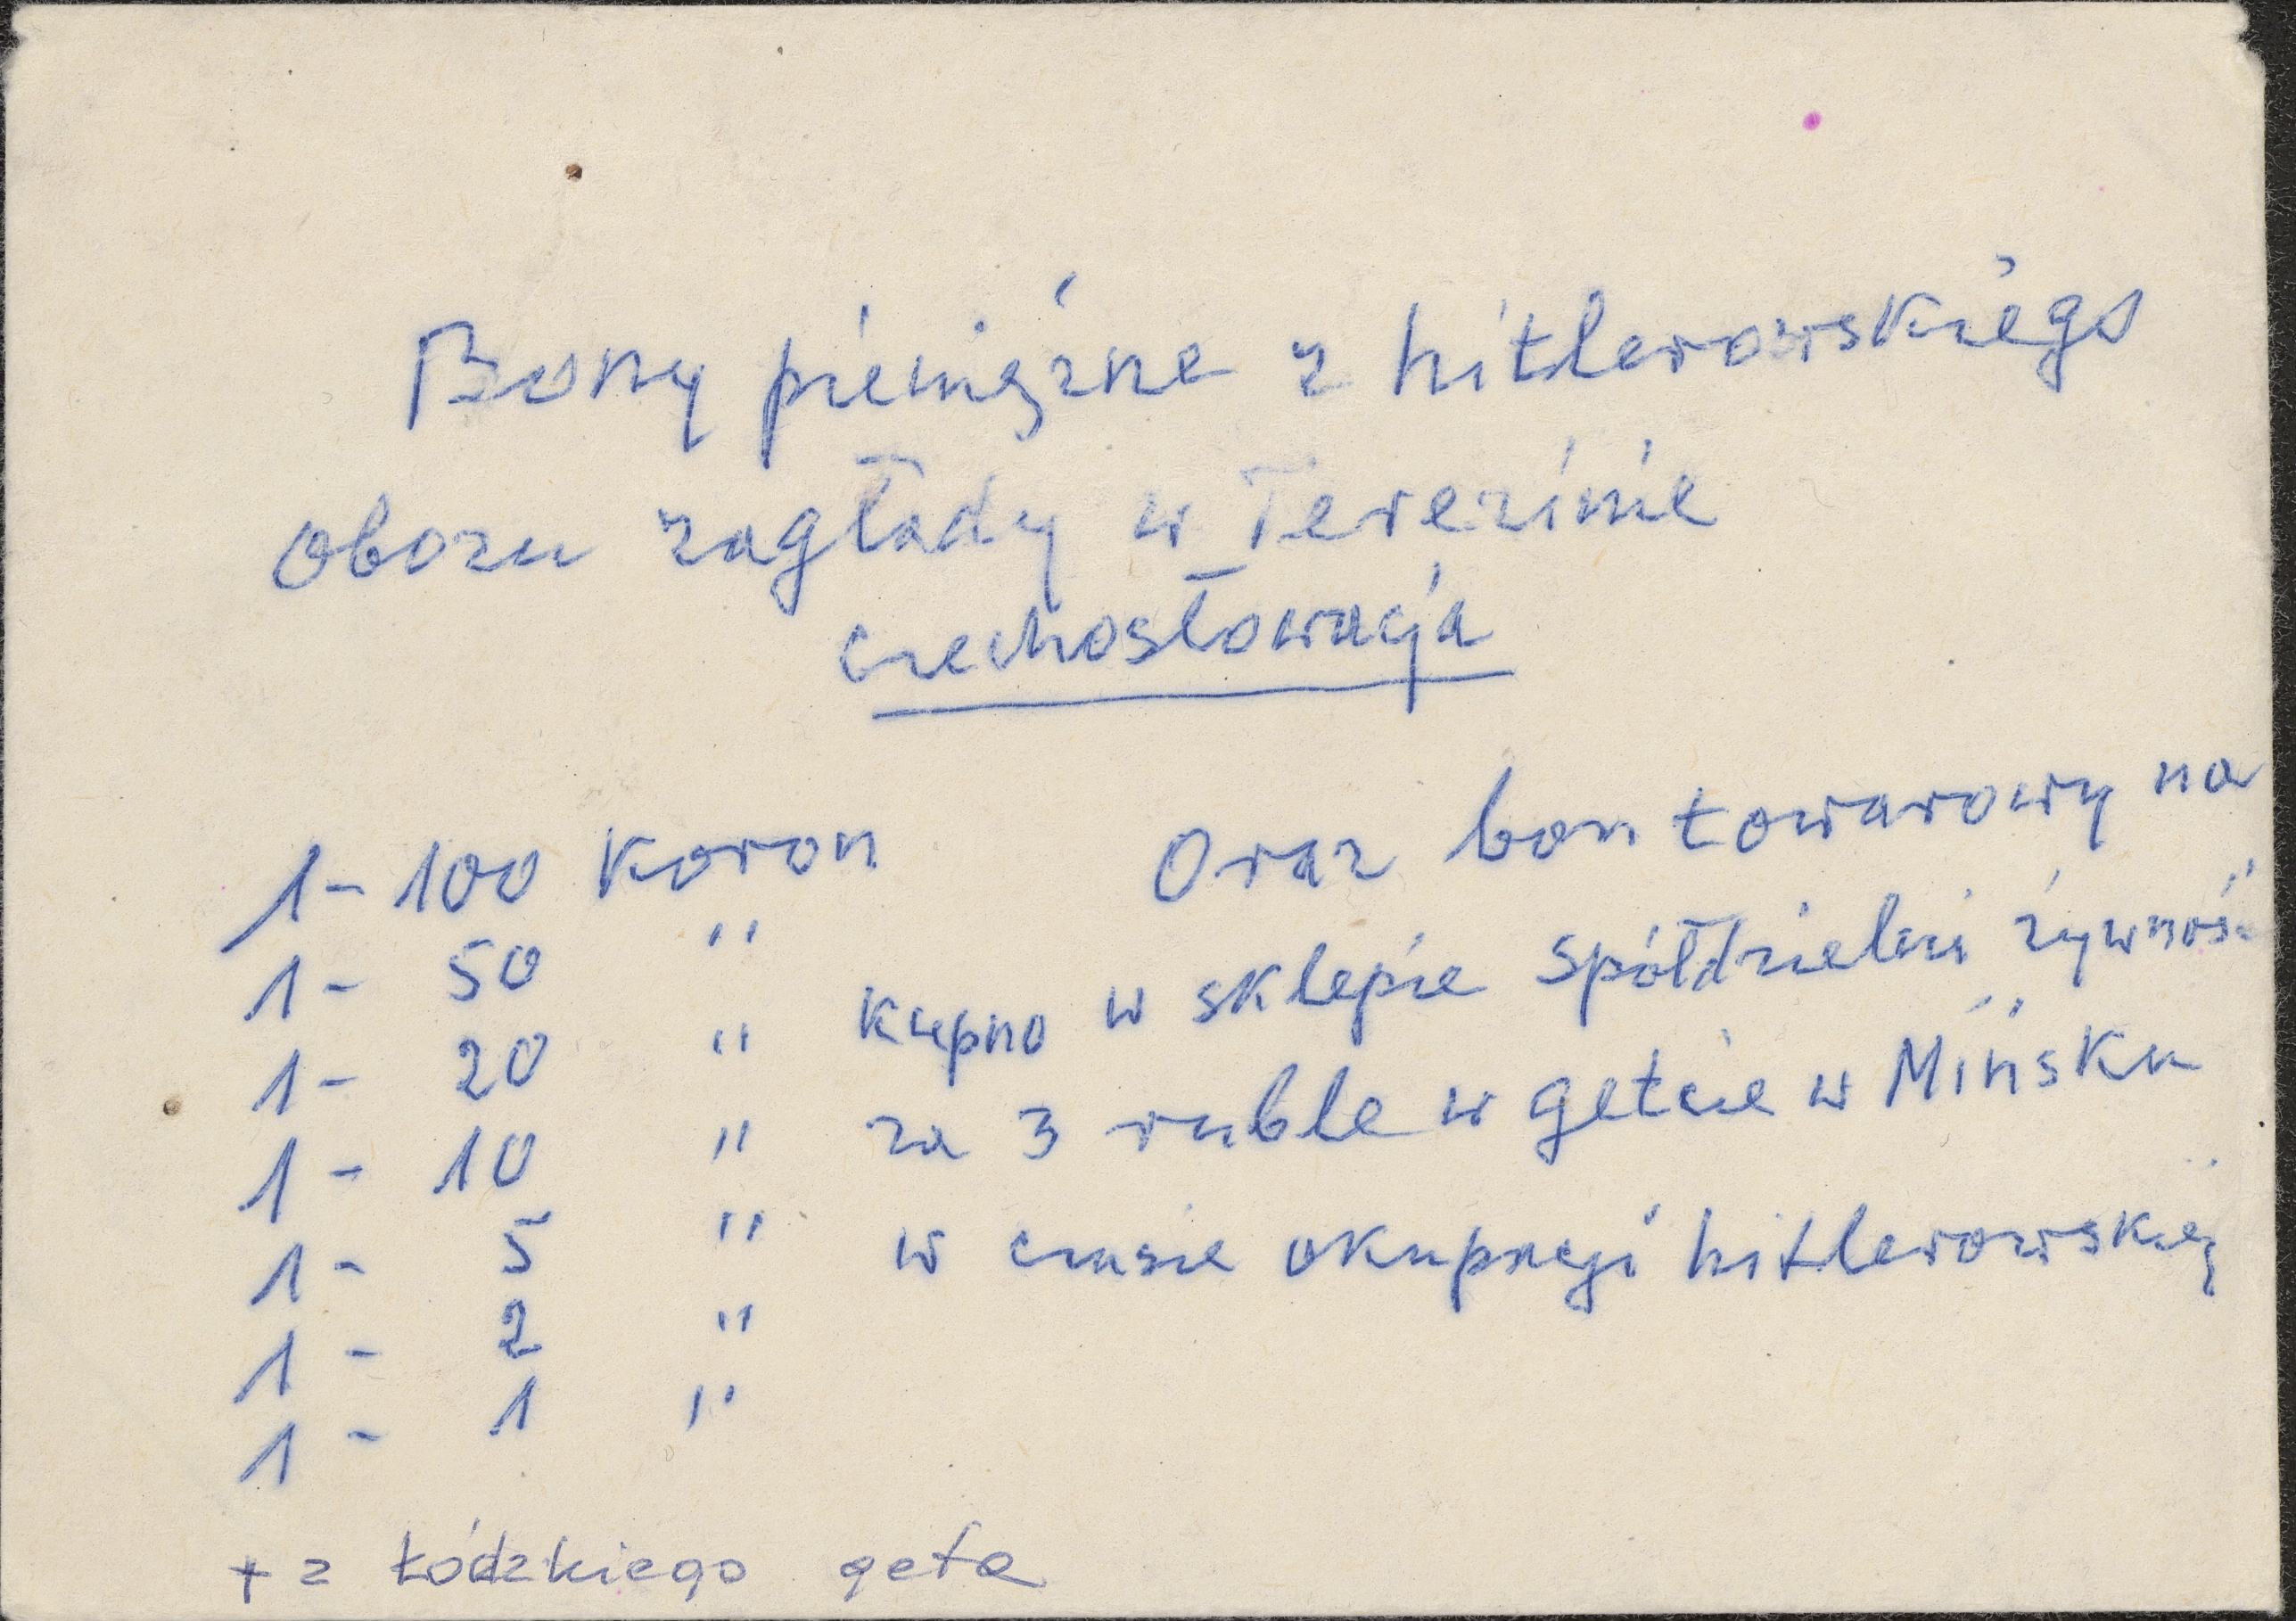 Bony pieniężne z hitlerowskiego
obozu zagłady w Terezinie
Czechosłowacja
1- 100 Koron
1- 50 "
1- 20 "
1- 10 "
1- 5 "
1- 2 "
1- 1 "
Oraz bon towarowy na
kupno w sklepie spółdzielni żywnoś.
za 3 ruble w getcie w Mińsku
w czasie okupacji hitlerowskiej
+ z łódzkiego geta